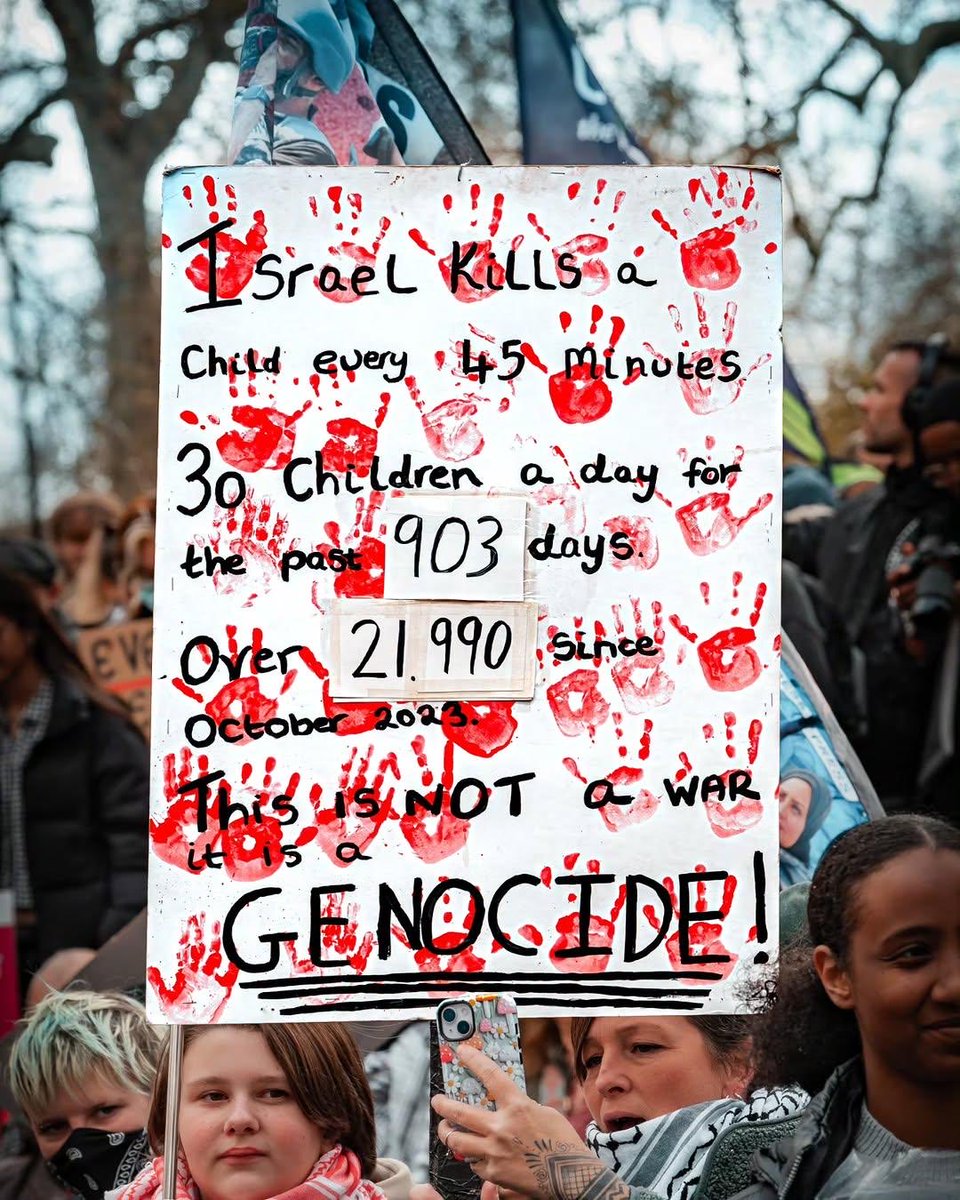 Israel Kills a
Child every 45 Minutes
30 Children a day for
the past 903 days.
Over 21.990 since
October 2023.
This is NOT a WAR
it is a
GENOCIDE!
EVE